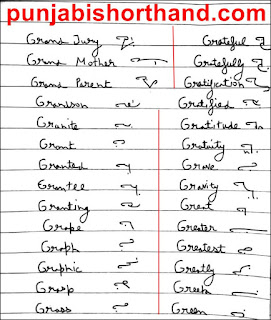 punjabishorthand.com
Grand Jury
Grand Mother
Grand Parent
Grandson
Granite
Grant
Granted
Grantee
Granting
Grape
Graph
Graphic
Grasp
Grass
Grateful
Gratefully
Gratification
Gratified
Gratitude
Gratuity
Grave
Gravity
Great
Greater
Greatest
Greatly
Greek
Green